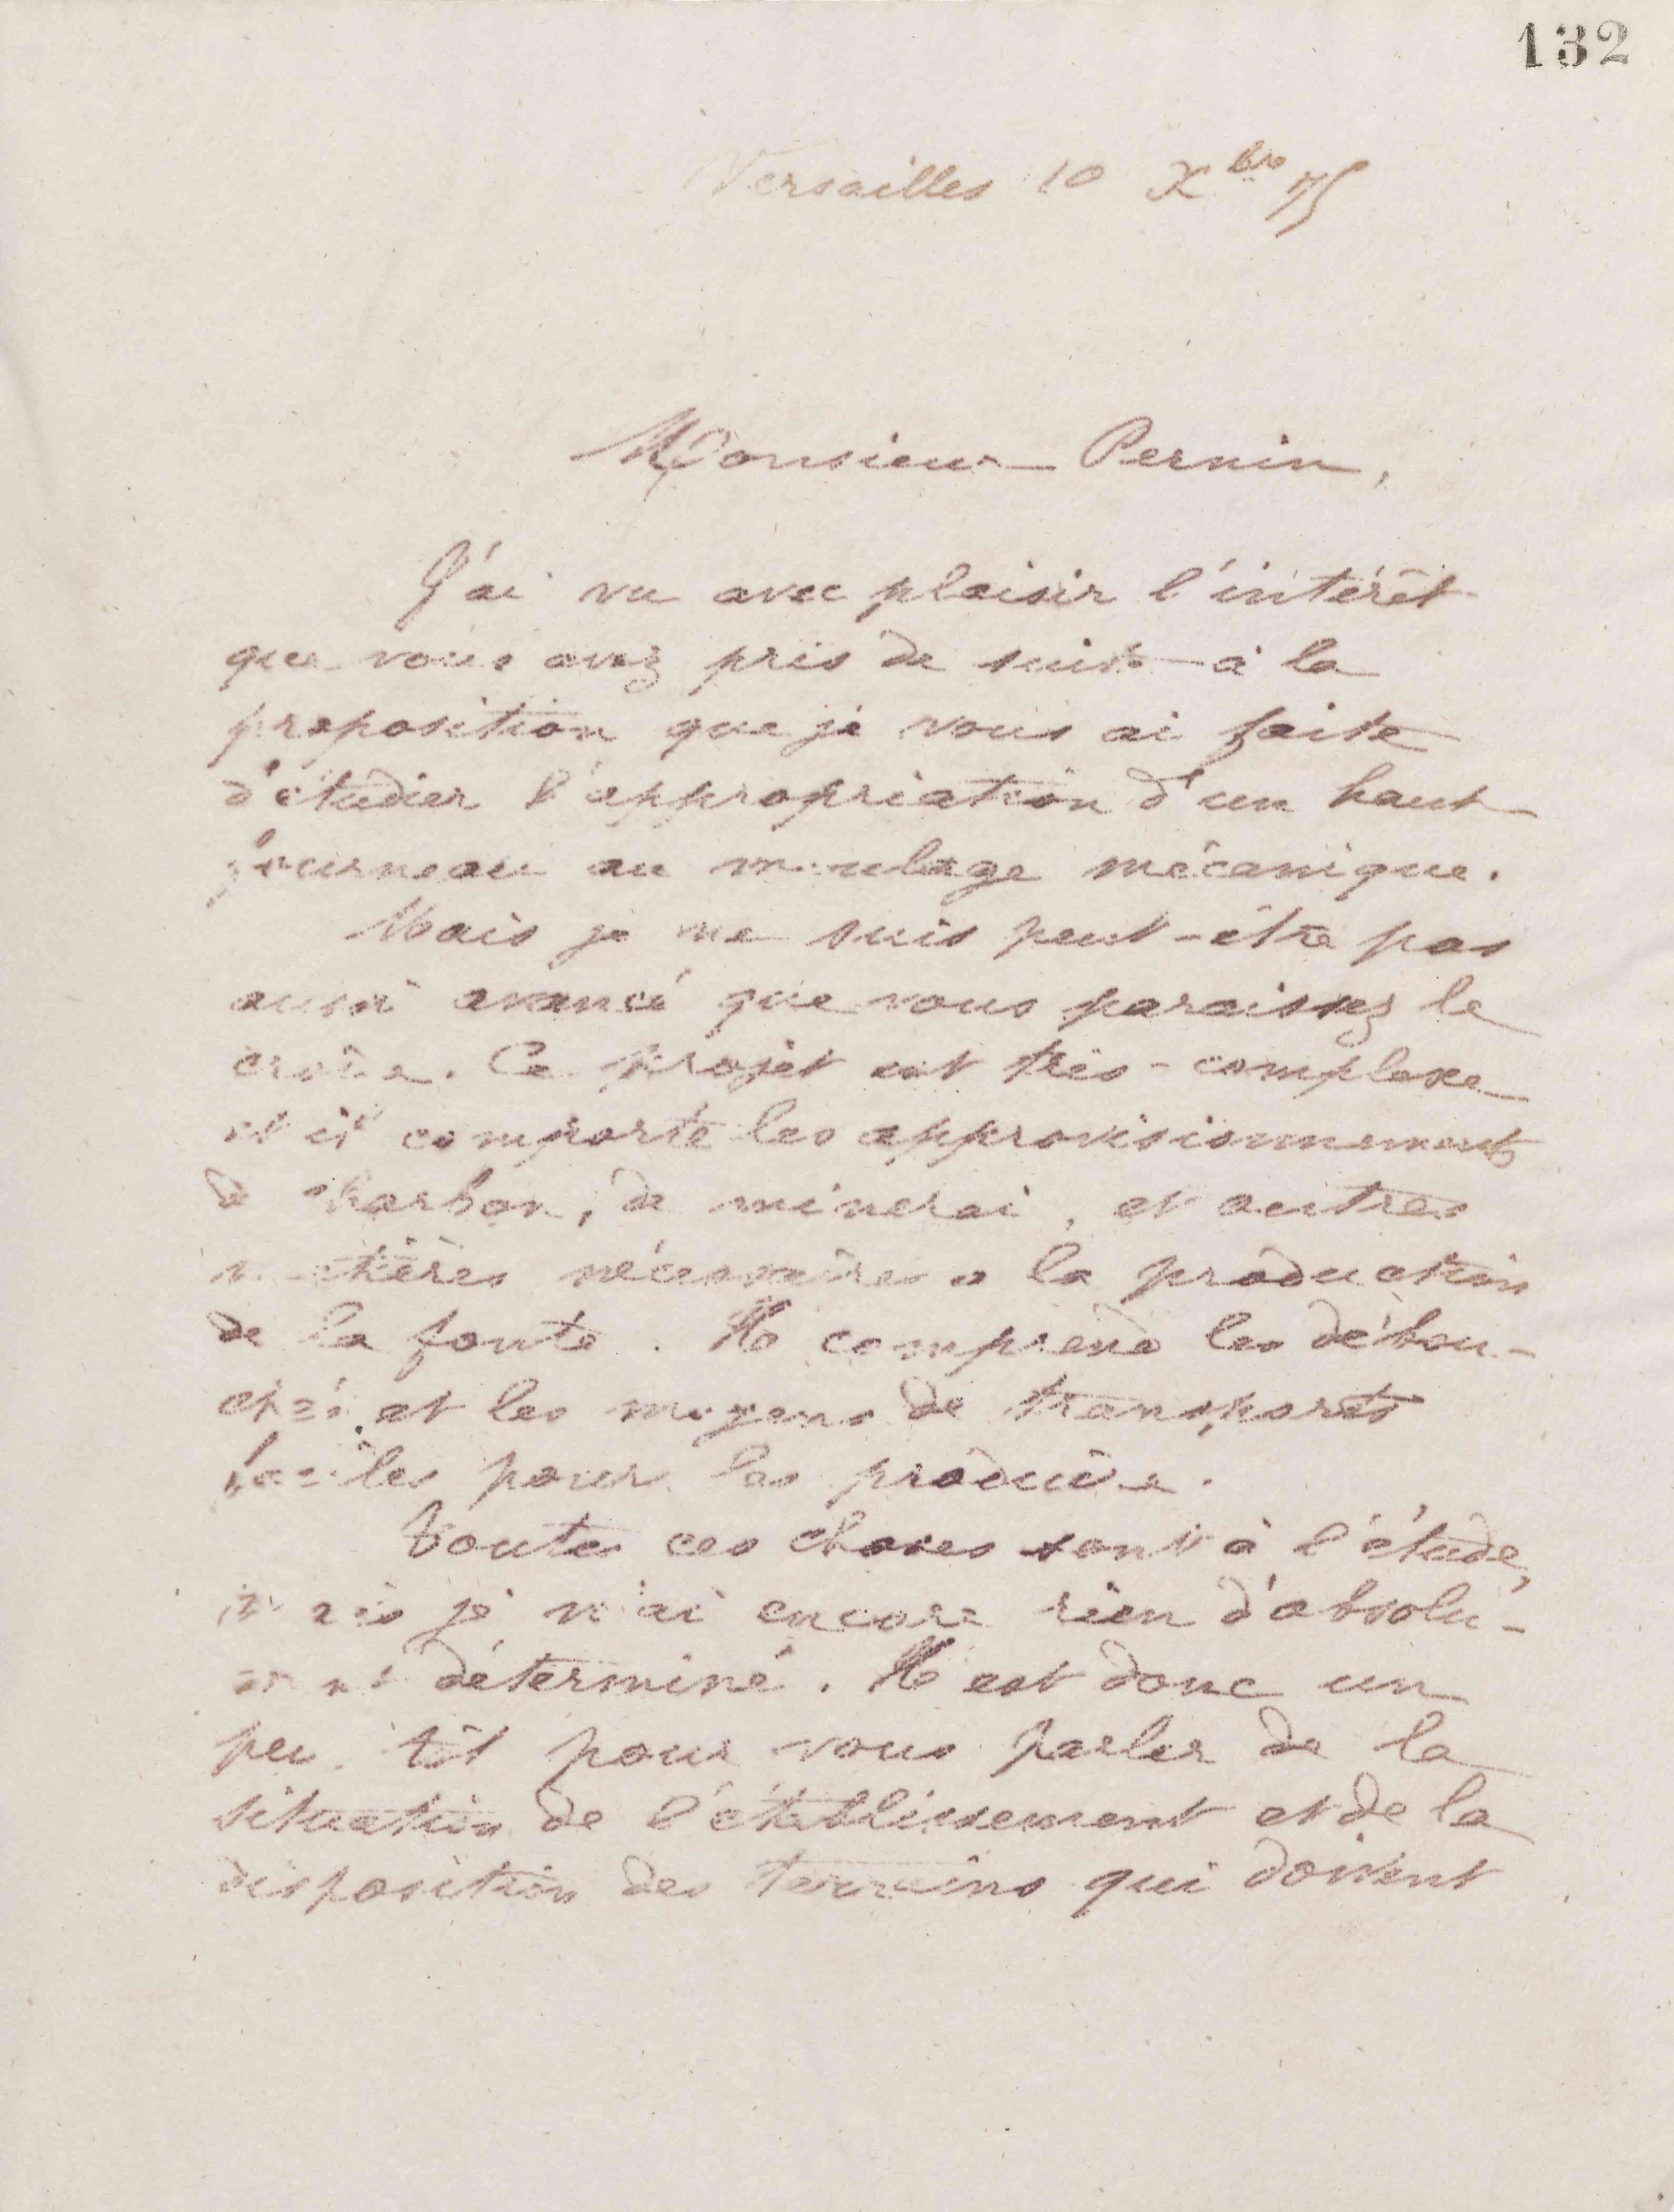 132
Versailles 10 Xbre 75
Monsieur Pernin,
J'ai vu avec plaisir l'intérêt
que vous avez pris de suite à la
proposition que je vous ai faite
d'étudier l'appropriation d'un haut
fourneau au moulage mécanique.
Mais je ne suis peut-être pas
aussi avancé que vous paraissez le
croire. Ce projet est très-complexe
et il comporte les approvisionnements
de charbon, de minerai, et autres
matières nécessaires à la production
de la fonte. Il comprend les débou-
chés et les moyens de transports
faciles pour les produire.
Toutes ces choses sont à l'étude,
mais je n'ai encore rien d'absolu-
ment déterminé. Il est donc un
peu tôt pour vous parler de la
situation de l'établissement et de la
disposition des terrains qui doivent